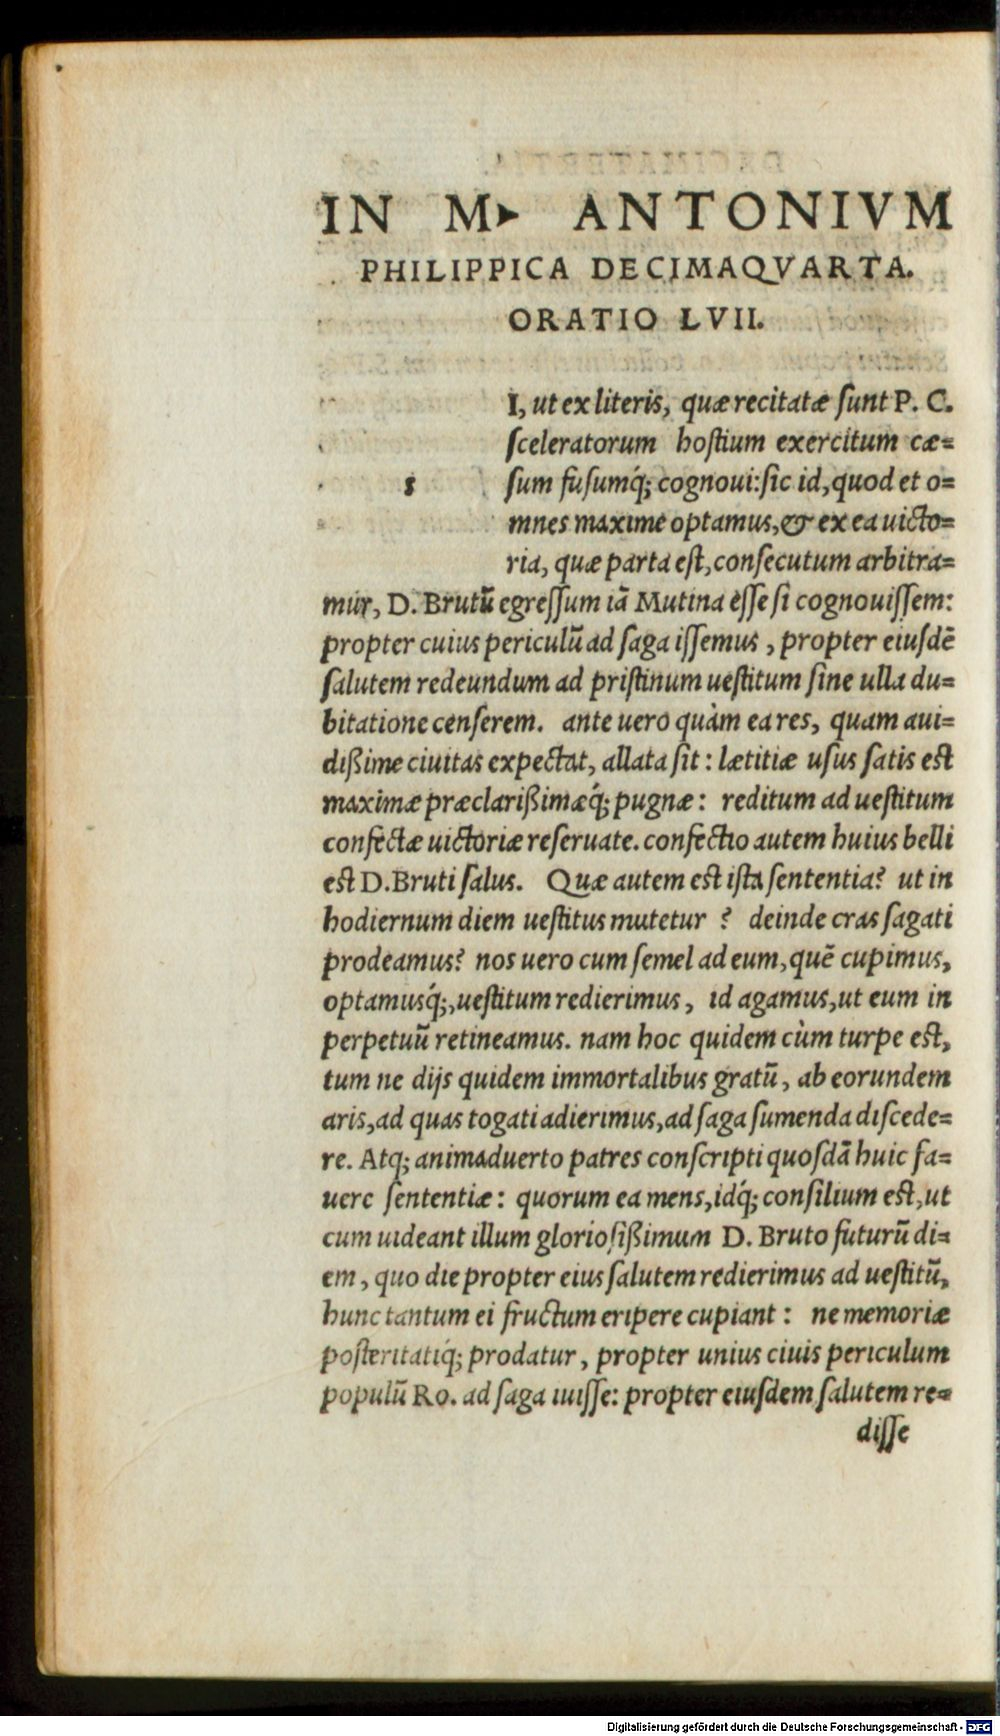 IN M▸ ANTONIVM
PHILIPPICA DECIMAQVARTA.
ORATIO LVII.
I, ut ex literis, quæ recitatæ ſunt P. C.
ſceleratorum hoſtium exercitum cæ=
s ſum fuſumq́; cognoui: ſic id, quod et o=
mnes maxime optamus, & ex ea uicto=
ria, quæ parta eſt, conſecutum arbitra=
mur, D. Brutū egreſſum iā Mutina eſſe ſi cognouiſſem:
propter cuius periculū ad ſaga iſſemus, propter eiuſdē
ſalutem redeundum ad priſtinum ueſtitum ſine ulla du=
bitatione cenſerem. ante uero quàm ea res, quam aui=
dißime ciuitas expectat, allata ſit: lætitiæ uſus ſatis eſt
maximæ præclarißimæq́; pugnæ: reditum ad ueſtitum
confectæ uictoriæ reſeruate. confectio autem huius belli
eſt D. Bruti ſalus. Quæ autem eſt iſta ſententia? ut in
hodiernum diem ueſtitus mutetur ? deinde cras ſagati
prodeamus? nos uero cum ſemel ad eum, quē cupimus,
optamusq́;, ueſtitum redierimus, id agamus, ut eum in
perpetuū retineamus. nam hoc quidem cùm turpe eſt,
tum ne dijs quidem immortalibus gratū, ab eorundem
aris, ad quas togati adierimus, ad ſaga ſumenda diſcede=
re. Atq; animaduerto patres conſcripti quoſdā huic fa=
uere ſententiæ: quorum ea mens, idq́; conſilium eſt, ut
cum uideant illum glorioſißimum D. Bruto futurū di=
em, quo die propter eius ſalutem redierimus ad ueſtitū,
hunc tantum ei fructum eripere cupiant: ne memoriæ
poſteritatiq́; prodatur, propter unius ciuis periculum
populū Ro. ad ſaga iuiſſe: propter eiuſdem ſalutem re=
diſſe
Digitalisierung gefördert durch die Deutsche Forschungsgemeinschaft - DFG